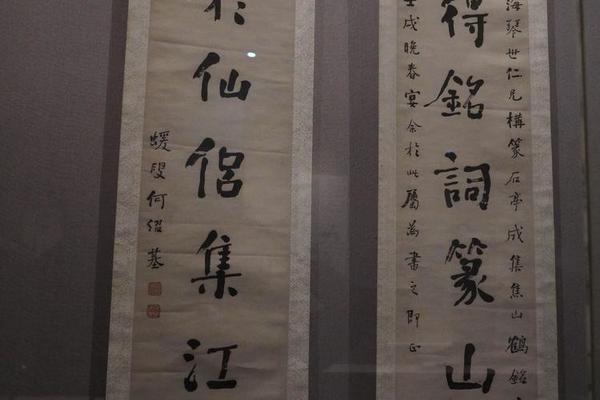 海琴世仁兄構篆石亭成集焦山鶴銘
得銘詞篆山
壬戌晚春宴余於此屬為書之即正
仙侶集江
蝯叟何紹基